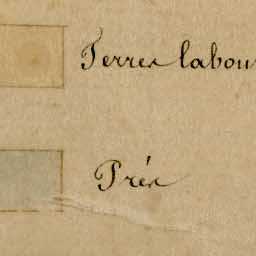 Terres labour
Prés